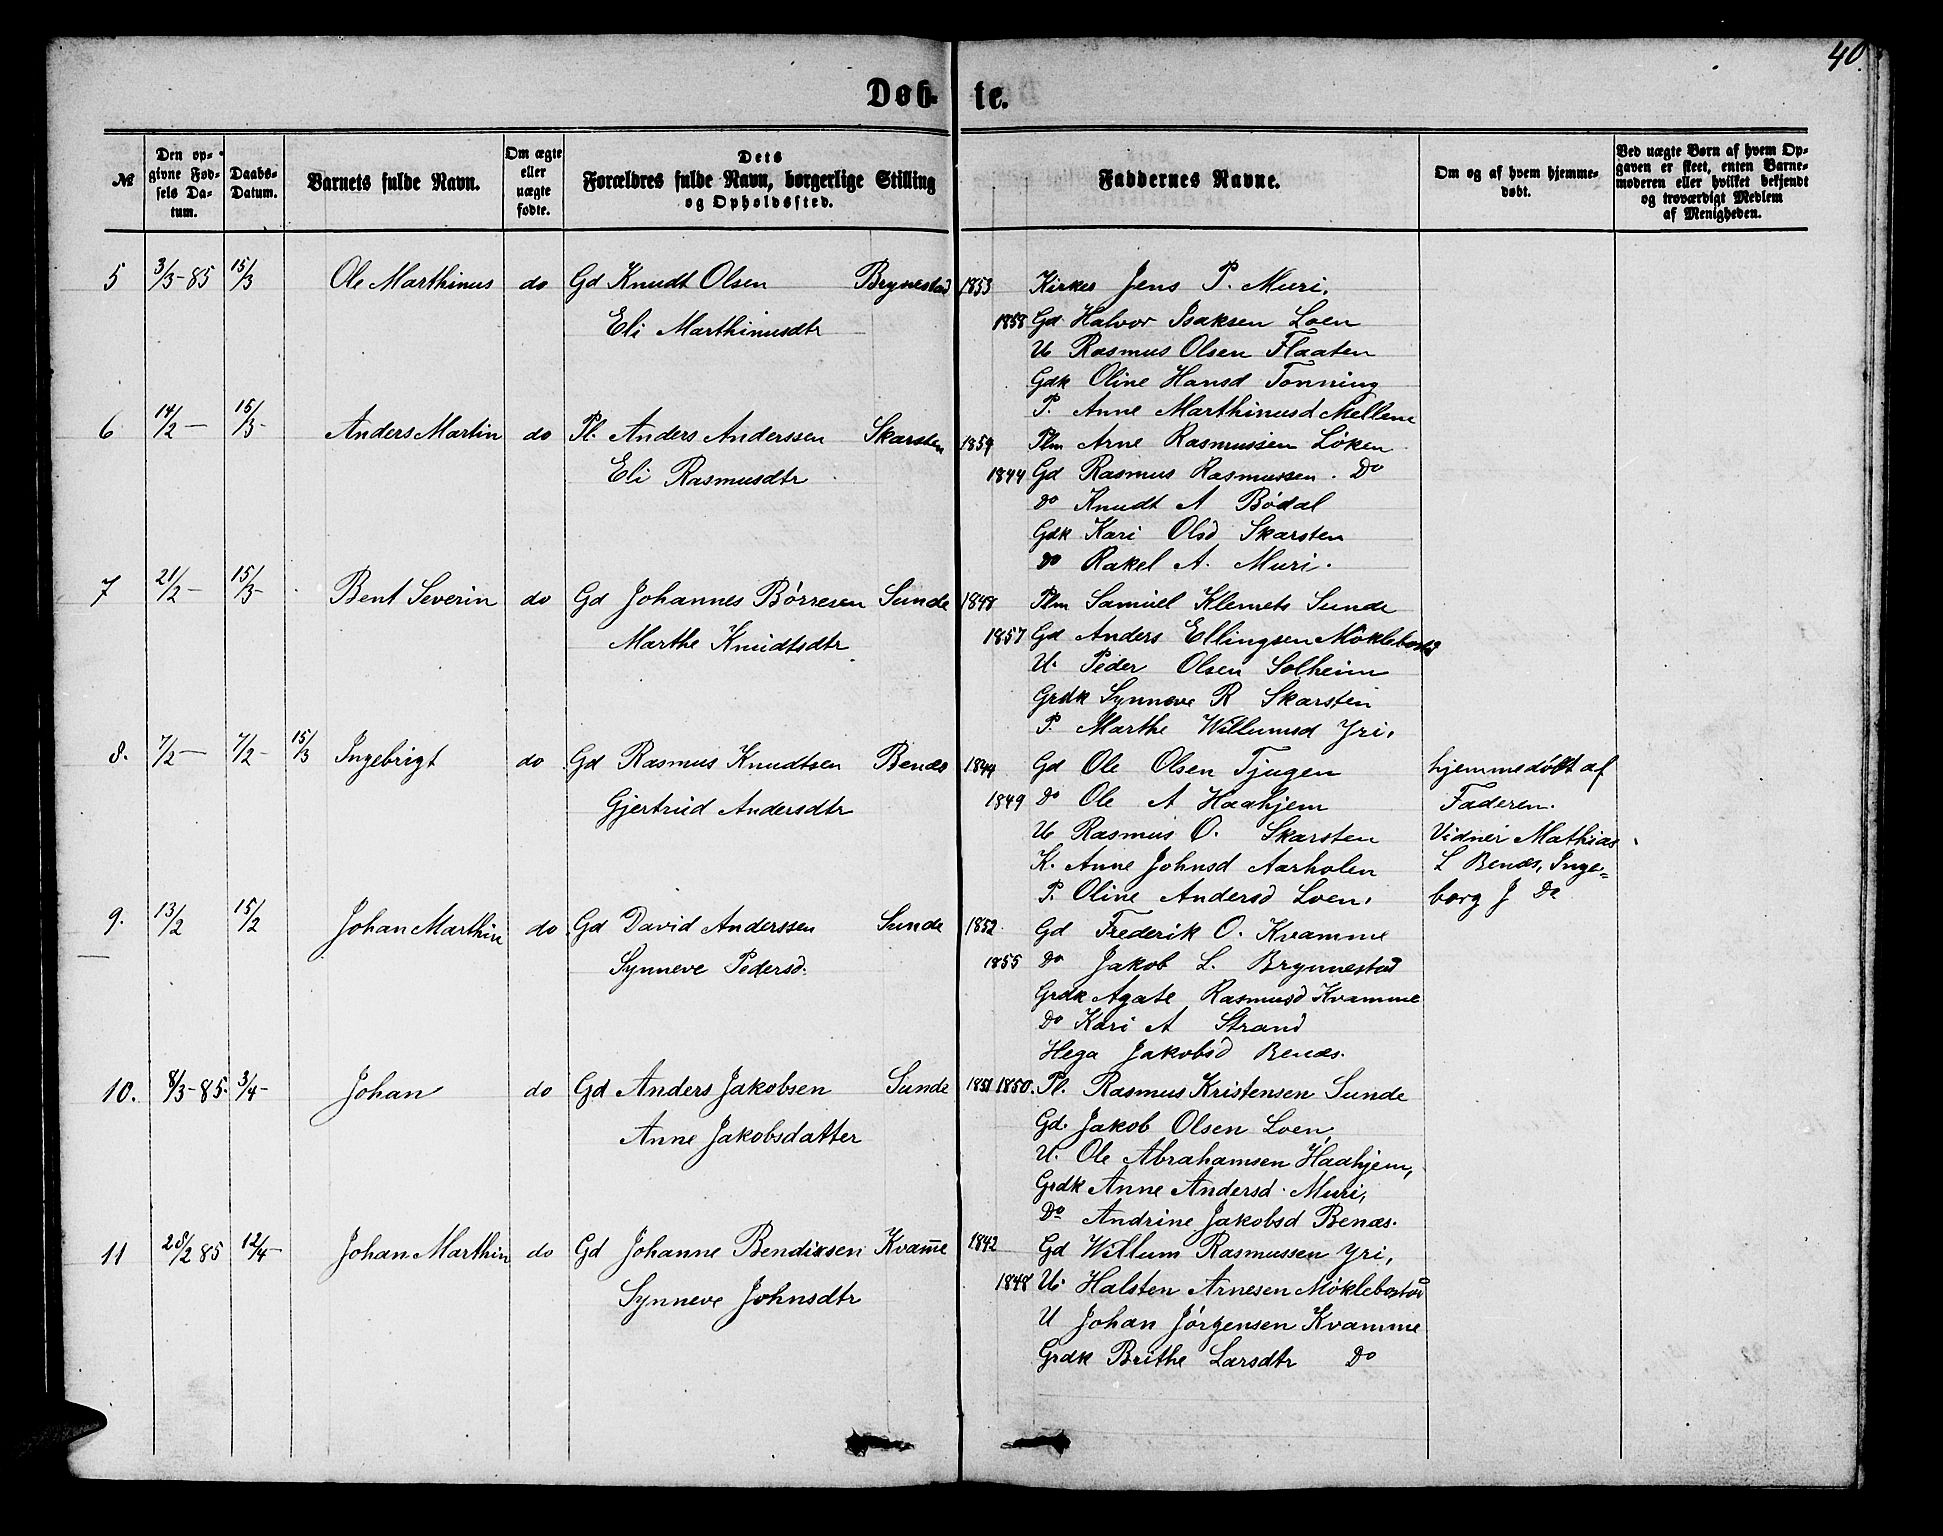 40.
Døbte.
№
Den opgivne Fødsels Datum.
Daabs-Datum.
Barnets fulde Navn.
Om ægte eller uægte fødte.
Dets Forældres fulde Navn, borgerlige Stilling og Opholdssted.
Faddernes Navne.
Om og af hvem hjemmedøbt.
Ved uægte Børn af hvem Opgaven er skeet, enten Barnemoderen eller hvilket bekjendt og troværdigt Medlem af Menigheden.
5 3/3-85 15/3 Ole Marthinus do Gd Knudt Olsen Brynestad 1853 Kirkes Jens P. Muri.
Eli Marthinusdtr 1858 Gd Halvor Isaksen Loen
U Rasmus Olsen Flaaten
Gdk Oline Hansd Tonning
P. Anne Marthinusd Mellene
6 14/2 — 15/3- Anders Martin do Pl. Anders Anderssen Skarsten 1859 Plm Arne Rasmussen Løken
Eli Rasmusdtr 1844 Gd Rasmus Rasmussen. Do
Do Knudt A Bødal
Gdk Kari Olsd Skarsten
Do Rakel A. Muri.
7 21/2 — 15/3- Bent Severin do Gd Johannes Børresen Sunde 1848 Plm Samuel Klemets Sunde
Marthe Knudtsdtr 1857 Gd Anders Ellingsen Møklebostd
U. Peder Olsen Solheim
Grdk Synneve R Skarsten
P. Marthe Willumsd Yri.
8. 7/2 — 7/2- 15/3 Ingebrigt do Gd Rasmus Knudtsen Benæs 1844 Gd Ole Olsen Tjugen hjemmedøbt af
Gjertrud Andersdtr 1849 Do Ole A Haahjem Faderen.
U Rasmus O. Skarsten Vidner Mathias
K. Anne Johnsd Aarholen L Benæs, Inge=
P. Oline Andersd Loen. borg J Do
9. 13/2 15/2 Johan Marthin do Gd David Anderssen Sunde 1852 Gd Frederik O. Kvamme
Synneve Pedersd. 1855 Do Jakob L. Brynnestad
Grdk Agate Rasmusd Kvamme
Do Kari A Strand
Hega Jakobsd Benæs.
10. 8/3-85. 3/4- Johan do Gd Anders Jakobsen Sunde 1851 1850. Pl. Rasmus Kristensen Sunde
Anne Jakobsdatter Gd. Jakob Olsen Loen,
U. Ole Abrahamsen Haahjem,
Grdk Anne Andersd. Muri,
Do Andrine Jakobsd Benæs.
11 28/2 85 12/4- Johan Marthin do Gd Johanne Bendixsen Kvam̅e 1842 Gd Willum Rasmussen Yri,
Synneve Johnsdtr 1848 U. Halsten Arnesen Møklebostad
U Johan Jørgensen Kvamme
Grdk Brithe Larsdtr Do